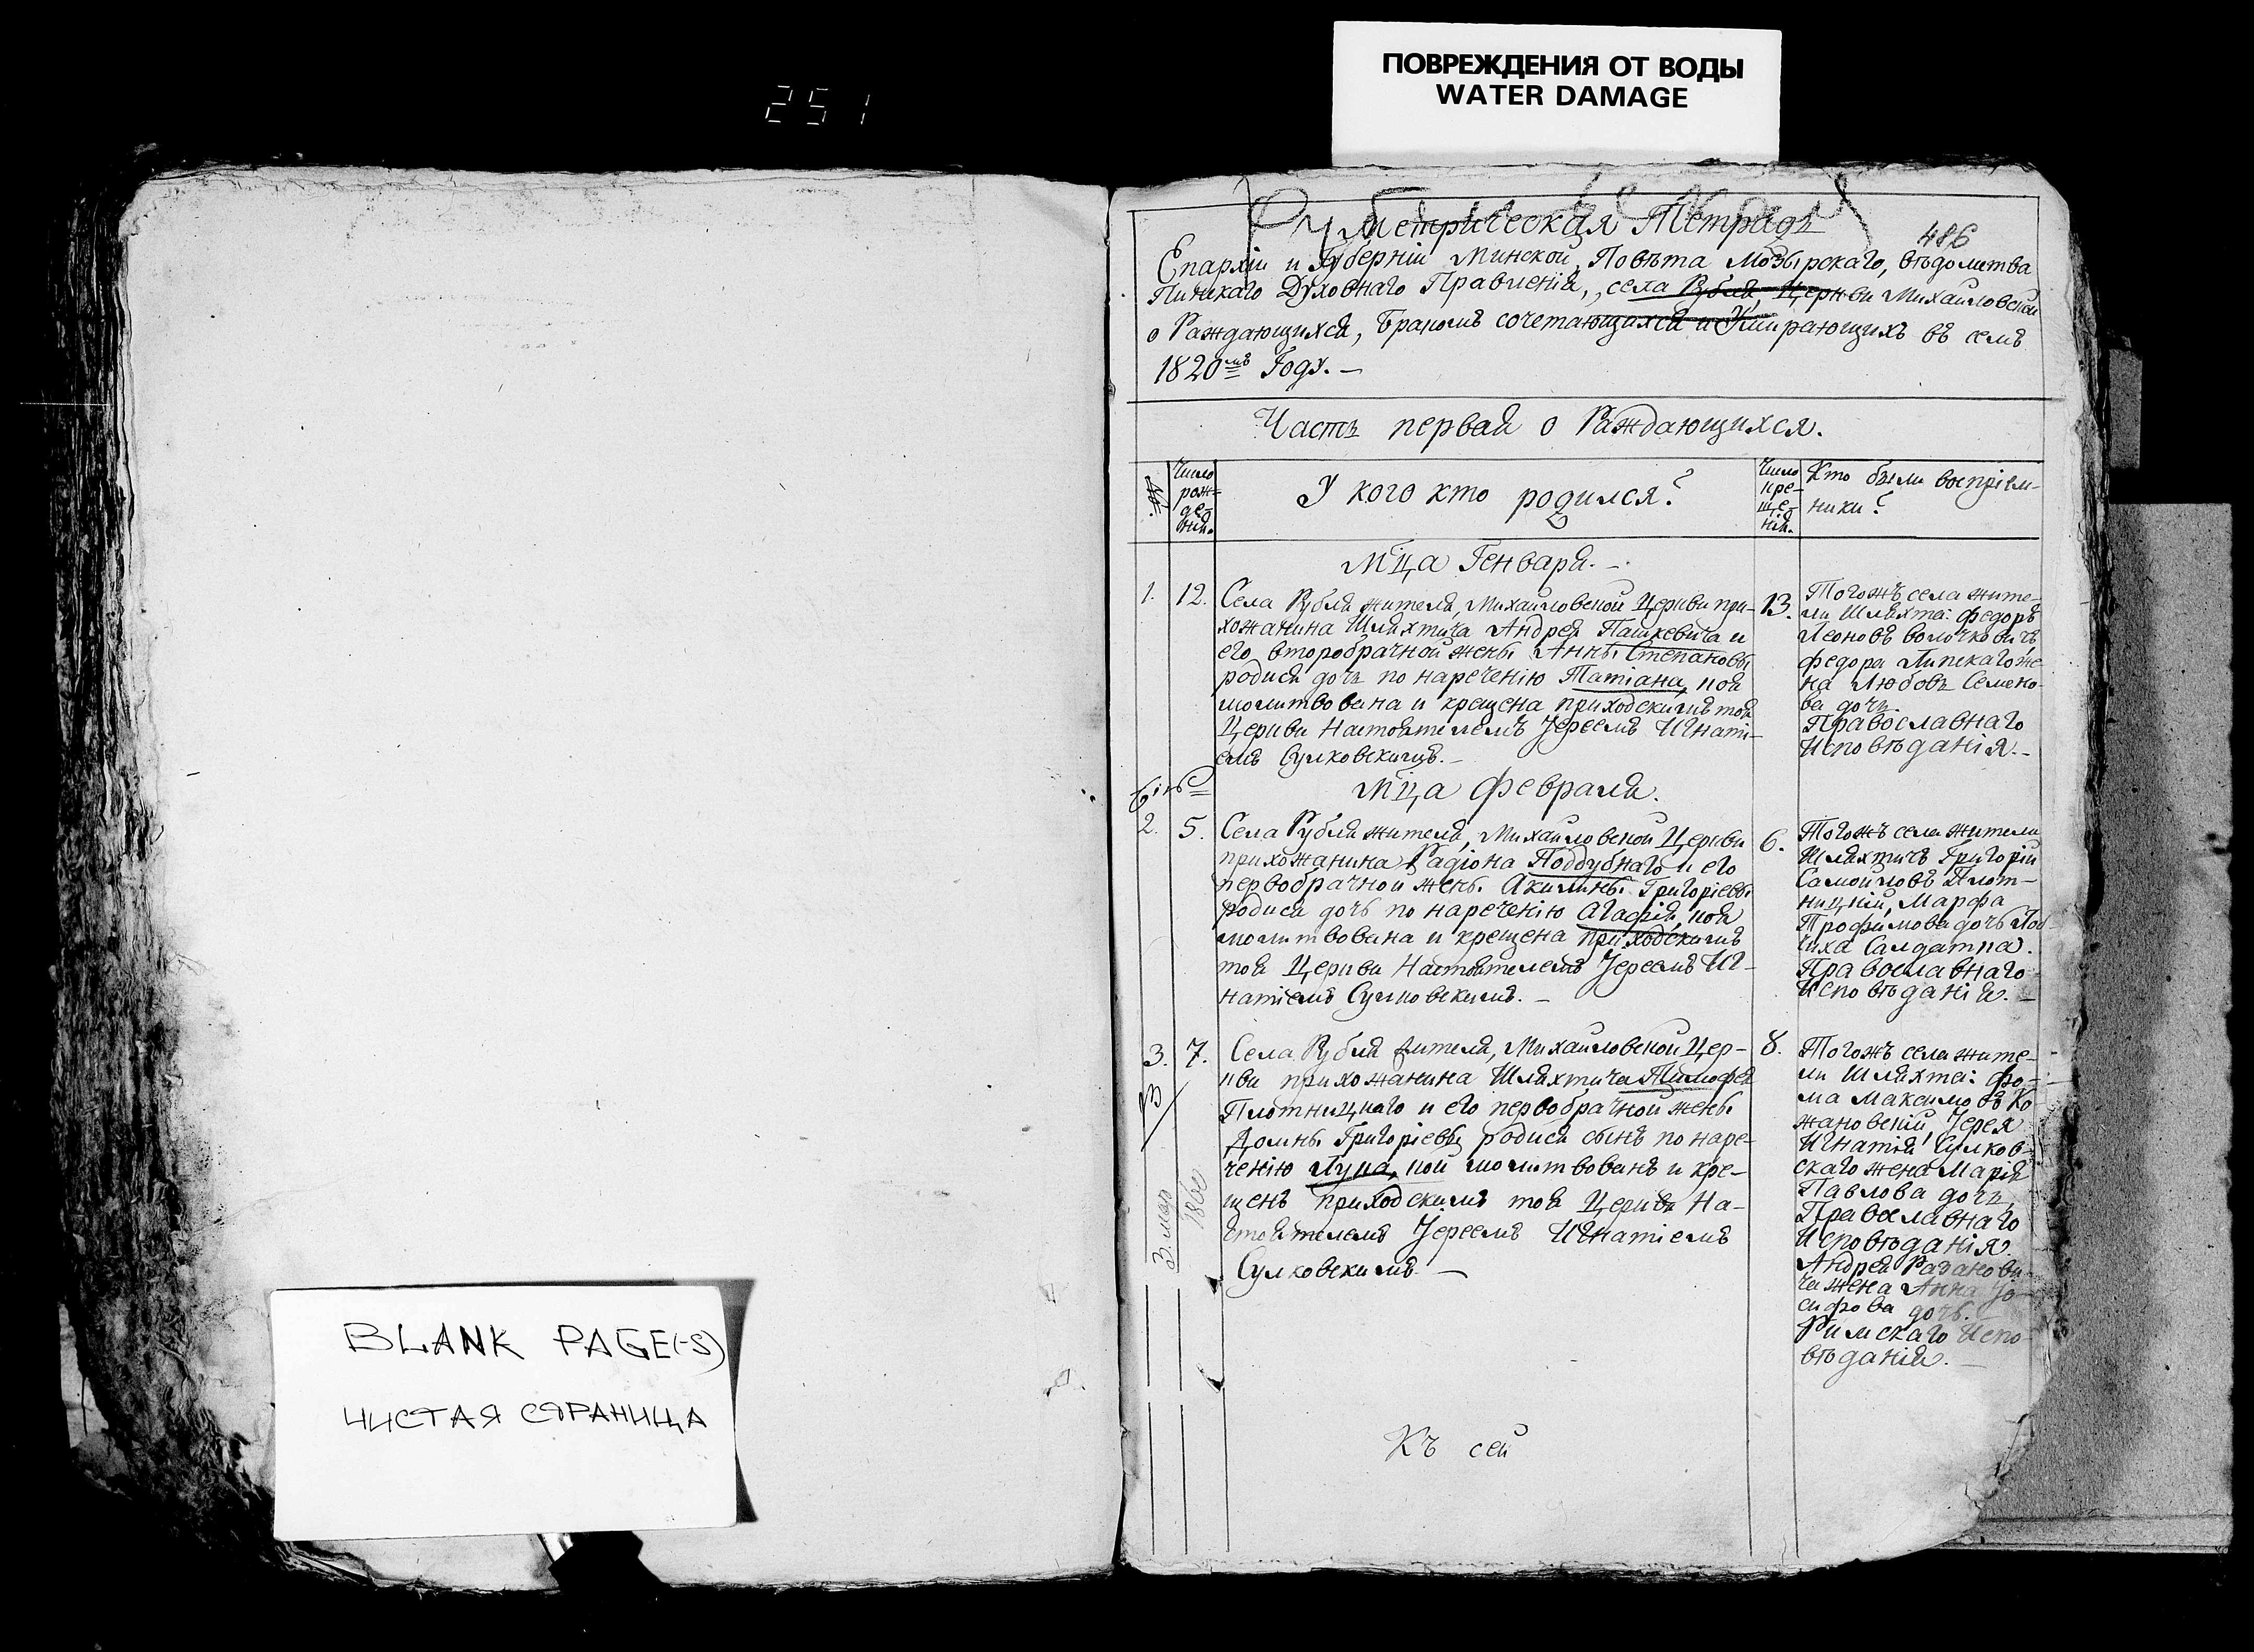 251
ПОВРЕЖДЕНИЯ ОТ ВОДЫ
WATER DAMAGE
Метрическая Тетрадь
486
Епархіи и Губерніи Минской, Повѣта Мозырскаго, вѣдомства
Пинскаго Духовнаго Правленія, села Рубля, Церкви Михайловской
о Раждающихся, Бракомъ сочетающихся и Умирающихъ въ семъ
1820мъ Году. —
Часть первая о Раждающихся.
№ Число рож-де-нія.
У кого кто родился?
Число кре-ще-нія.
Кто были воспріем-
ники?
Мца Генваря. —
1. 12. Села Рубля жителя, Михайловской Церкви при-
хожанина Шляхтича Андрея Пашкевича и
его второбрачной жены Анны Степановы
родися дочь по нареченію Татіана, коя
молитвована и крещена приходскимъ тоя
Церкви Настоятелемъ Іереемъ Игнаті-
емъ Сулковскимъ. —
13. Тогожъ села жите-
ли Шляхта: Федоръ
Леоновъ Волочковичъ,
Федора Липскаго же-
на Любовь Семено-
ва дочь.
Православнаго
Исповѣданія. —
Мца Февраля.
2. 5. Села Рубля жителя, Михайловской Церкви
прихожанина Радіона Поддубнаго и его
первобрачной жены Акилины Григоріевы
родися дочь по нареченію Агафія, коя
молитвована и крещена приходскимъ
тоя Церкви Настоятелемъ Іереемъ Иг-
натіемъ Сулковскимъ. —
6. Тогожъ села жители
Шляхтичъ Григорій
Самойловъ Плот-
ницкій, Марфа
Трофимова дочь
Салдатка.
Православнаго
Исповѣданія. —
3. 7. Села Рубля жителя, Михайловской Цер-
кви прихожанина Шляхтича Тимофея
Плотницкаго и его первобрачной жены
Домны Григоріевы родися сынъ по наре-
ченію Лука, кой молитвованъ и кре-
щенъ приходскимъ тоя Церкви На-
стоятелемъ Іереемъ Игнатіемъ
Сулковскимъ. —
3 мая
1860
8. Тогожъ села жите-
ли Шляхта: Фо-
ма Максимовъ Ко
жановскій, Іерея
Игнатія Сулков-
скаго жена Марія
Павлова дочь,
Православнаго
Исповѣданія.
Андрея Разанови-
ча жена Анна Іо-
сифова дочь. —
Римскаго Испо-
вѣданія. —
Къ сей
BLANK PAGE(-S)
ЧИСТАЯ СТРАНИЦА